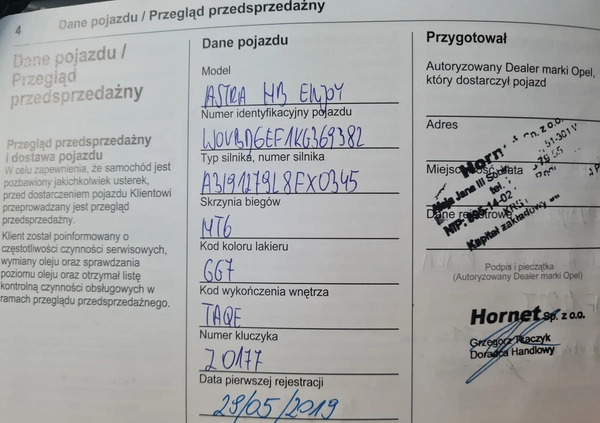 4
Dane pojazdu / Przegląd przedsprzedażny
Dane pojazdu /
Przegląd
przedsprzedażny
Przegląd przedsprzedażny
i dostawa pojazdu
W celu zapewnienia, że samochód jest
pozbawiony jakichkolwiek usterek,
przed dostarczeniem pojazdu Klientowi
przeprowadzany jest przegląd
przedsprzedażny.
Klient został poinformowany o
częstotliwości czynności serwisowych,
wymiany oleju oraz sprawdzania
poziomu oleju oraz otrzymał listę
kontrolną czynności obsługowych w
ramach przeglądu przedsprzedażnego.
Dane pojazdu
Model
ASTRA HB ENJOY
Numer identyfikacyjny pojazdu
W0VBD6EF1KG369382
Typ silnika, numer silnika
A3191279L8FX0345
Skrzynia biegów
MT6
Kod koloru lakieru
GG7
Kod wykończenia wnętrza
TAQE
Numer kluczyka
Z0177
Data pierwszej rejestracji
29/05/2019
Przygotował
Autoryzowany Dealer marki Opel,
który dostarczył pojazd
Adres
Hornet Sp. z o.o.
Aleja Jana III
tel.
Kapitał zakładowy
Podpis i pieczątka
(Autoryzowany Dealer marki Opel)
Hornet Sp. z o.o.
Grzegorz Tkaczyk
Doradca Handlowy